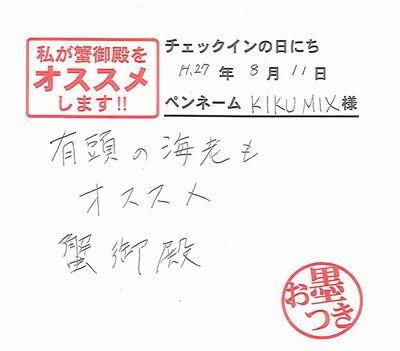 私が蟹御殿を
オススメ
します!!
チェックインの日にち
H.27 年 8 月 11 日
ペンネーム KIKUMIX 様
有頭の海老も
オススメ
蟹御殿
お墨
つき